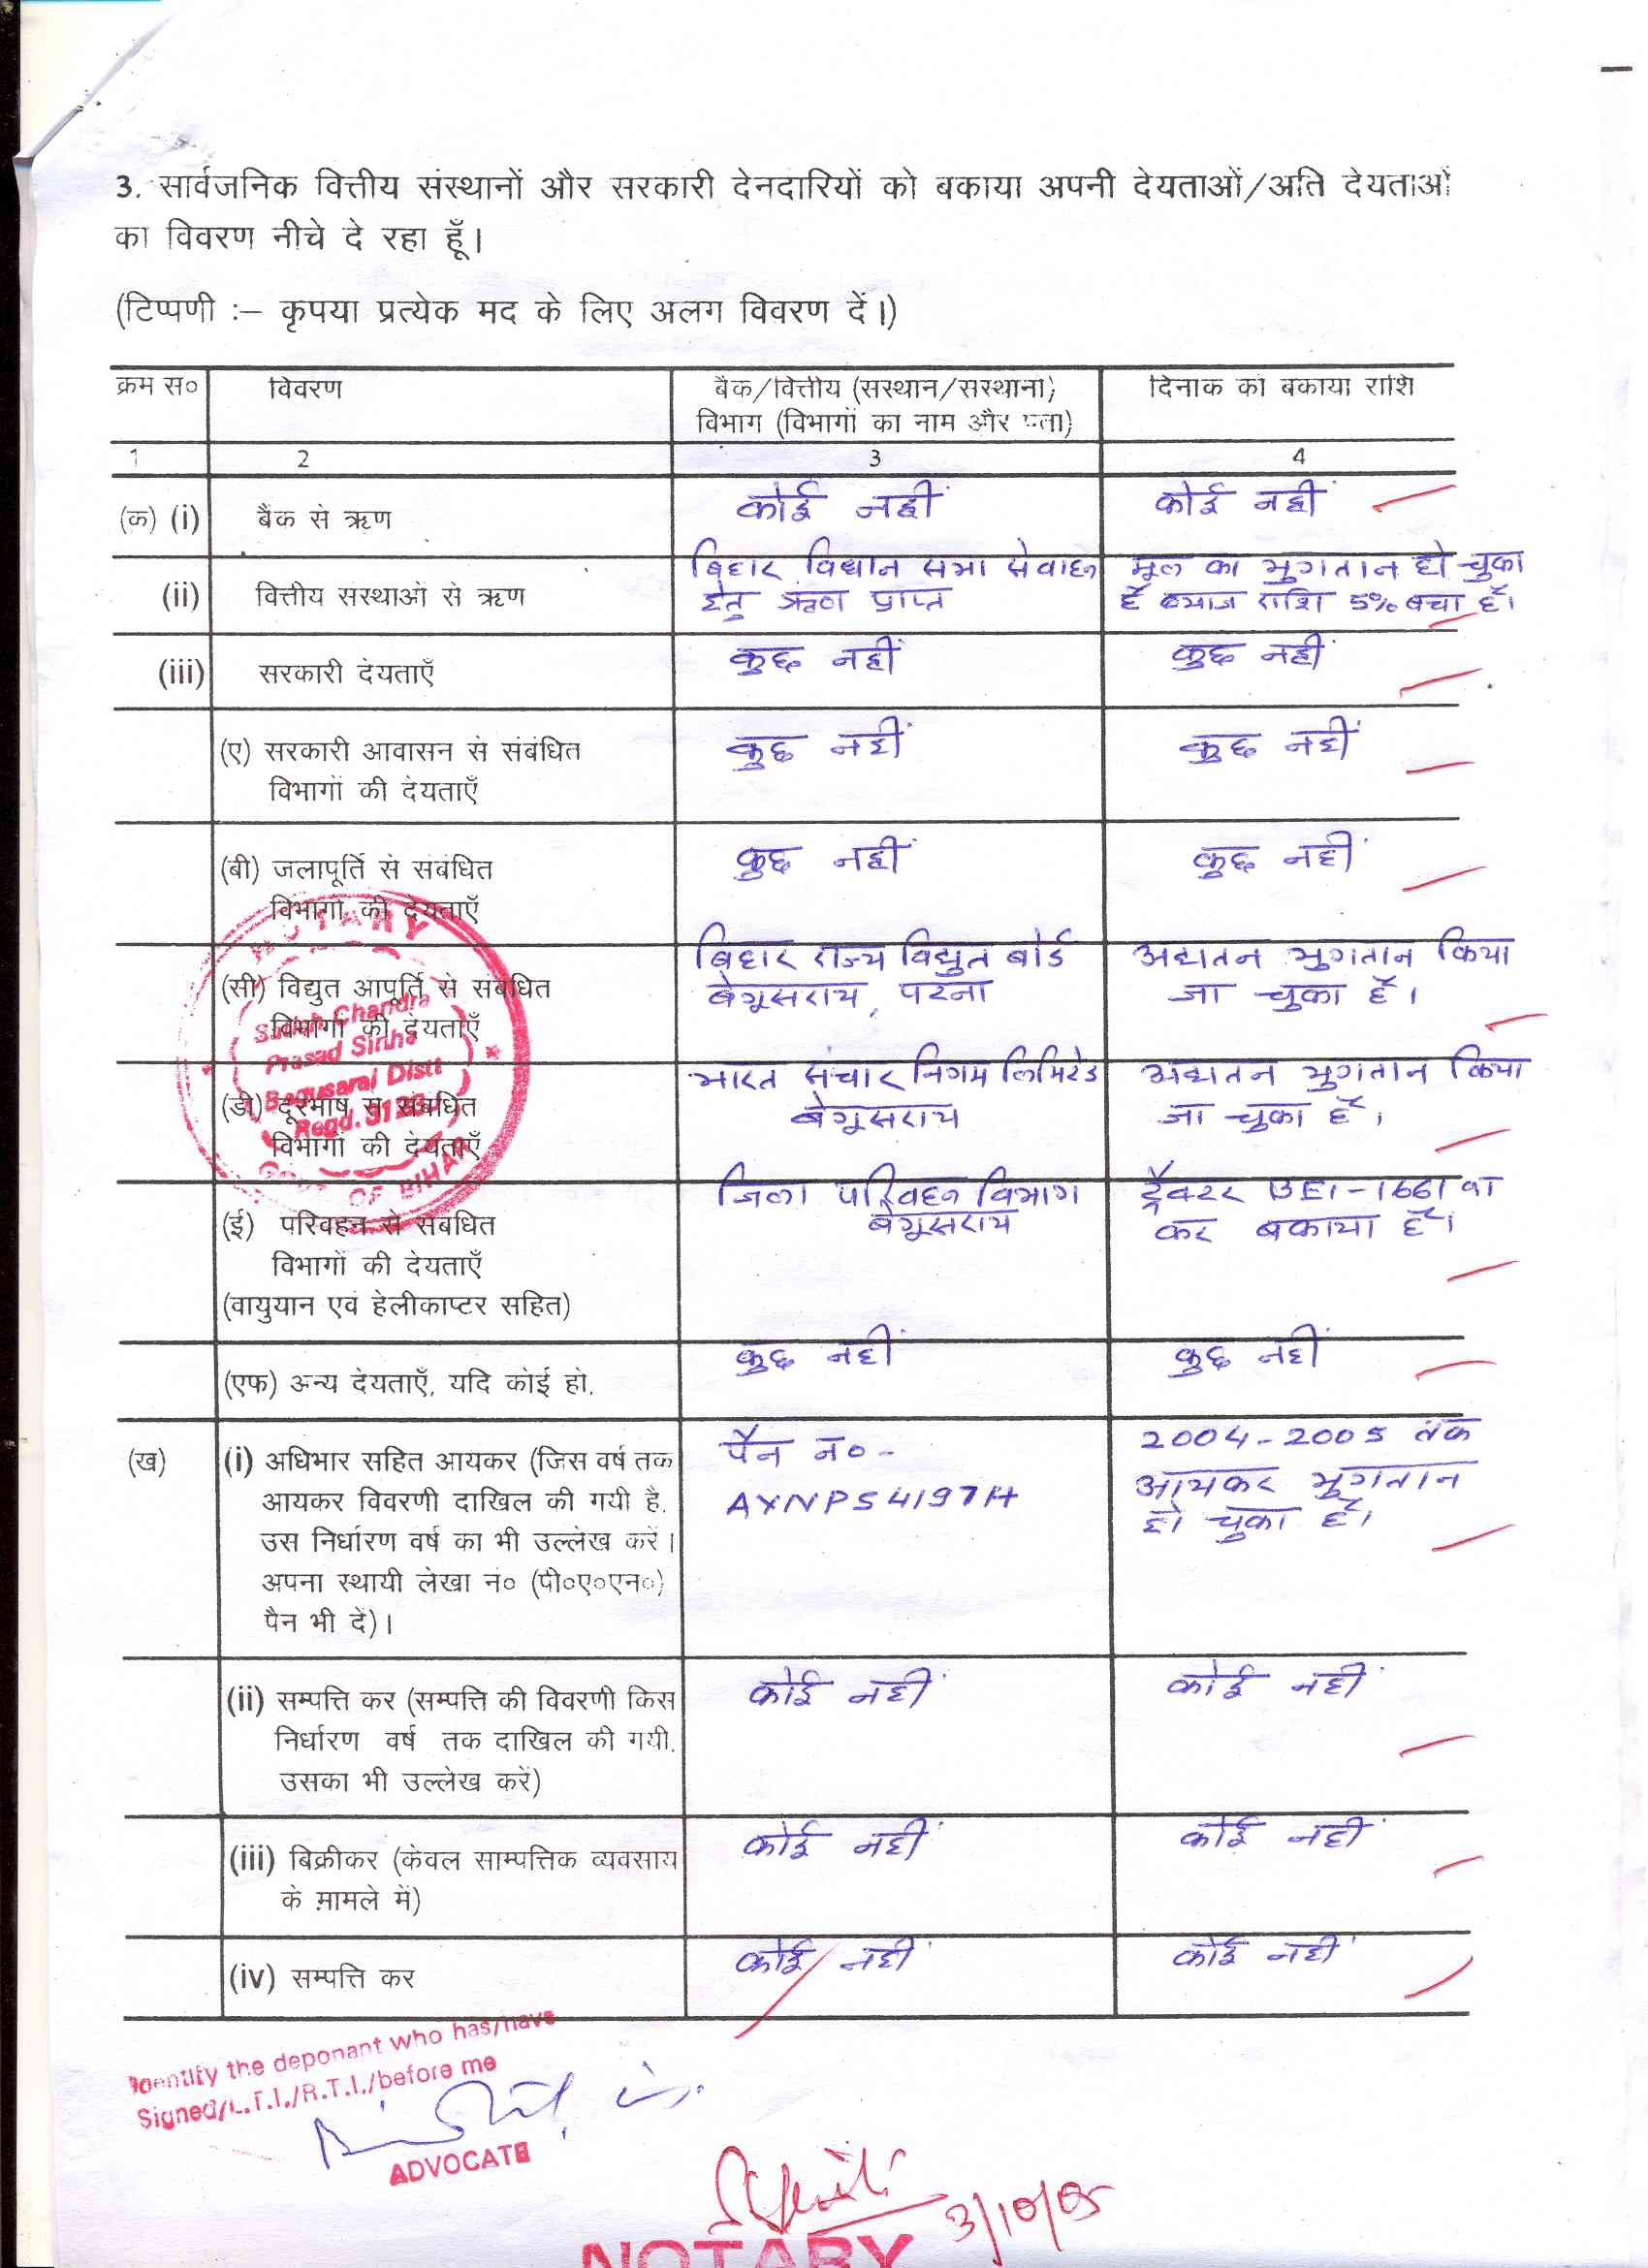 3. सार्वजनिक वित्तीय संस्थानों और सरकारी देनदारियों को बकाया अपनी देयताओं/अति देयताओं
का विवरण नीचे दे रहा हूँ।
(टिप्पणी :– कृपया प्रत्येक मद के लिए अलग विवरण दें।)
क्रम स० विवरण बैंक/वित्तीय (संस्थान/संस्थानों) दिनांक को बकाया राशि
विभाग (विभागों का नाम और पता)
1 2 3 4
(क) (i) बैंक से ऋण कोई नहीं कोई नहीं
(ii) वित्तीय संस्थाओं से ऋण बिहार विधान सभा से वाहन मूल का भुगतान हो चुका
हेतु ऋण प्राप्त है ब्याज राशि 5% बचा है।
(iii) सरकारी देयताएँ कुछ नहीं कुछ नहीं
(ए) सरकारी आवासन से संबंधित कुछ नहीं कुछ नहीं
विभागों की देयताएँ
(बी) जलापूर्ति से संबंधित कुछ नहीं कुछ नहीं
विभागों की देयताएँ
(सी) विद्युत आपूर्ति से संबंधित बिहार राज्य विद्युत बोर्ड अद्यतन भुगतान किया
विभागों की देयताएँ बेगूसराय, पटना जा चुका है।
(डी) दूरभाष से संबंधित भारत संचार निगम लिमिटेड अद्यतन भुगतान किया
विभागों की देयताएँ बेगूसराय जा चुका है।
(ई) परिवहन से संबंधित जिला परिवहन विभाग ट्रैक्टर BEI-1661 का
विभागों की देयताएँ बेगूसराय कर बकाया है।
(वायुयान एवं हेलीकाप्टर सहित)
(एफ) अन्य देयताएँ, यदि कोई हो. कुछ नहीं कुछ नहीं
(ख) (i) अधिभार सहित आयकर (जिस वर्ष तक पैन नं०- 2004-2005 तक
आयकर विवरणी दाखिल की गयी है, AXNPS4197H आयकर भुगतान
उस निर्धारण वर्ष का भी उल्लेख करें। हो चुका है।
अपना स्थायी लेखा नं० (पी०ए०एन०)
पैन भी दें)।
(ii) सम्पत्ति कर (सम्पत्ति की विवरणी किस कोई नहीं कोई नहीं
निर्धारण वर्ष तक दाखिल की गयी,
उसका भी उल्लेख करें)
(iii) बिक्रीकर (केवल साम्पत्तिक व्यवसाय कोई नहीं कोई नहीं
के मामले में)
(iv) सम्पत्ति कर कोई नहीं कोई नहीं
NOTARY
Chandra
Prasad Sinha
Begusarai Distt
Regd.
OF BIHAR
Identify the deponant who has/have
Signed/L.T.I./R.T.I./before me
ADVOCATE
3/10/05
NOTARY